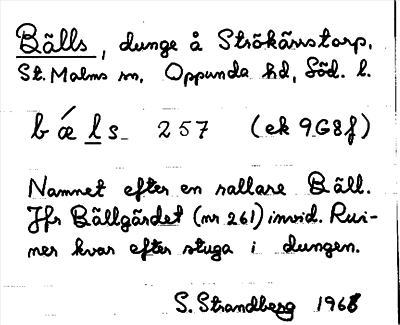 Bälls, dunge å Strökärrstorp,
St. Malms sn, Oppunda hd, Söd. l.
bǽls 257 (ek 9G8f)
Namnet efter en rallare Bäll.
Jfr Bällgärdet (nr 261) invid. Rui-
ner kvar efter stuga i dungen.
S. Strandberg 1968